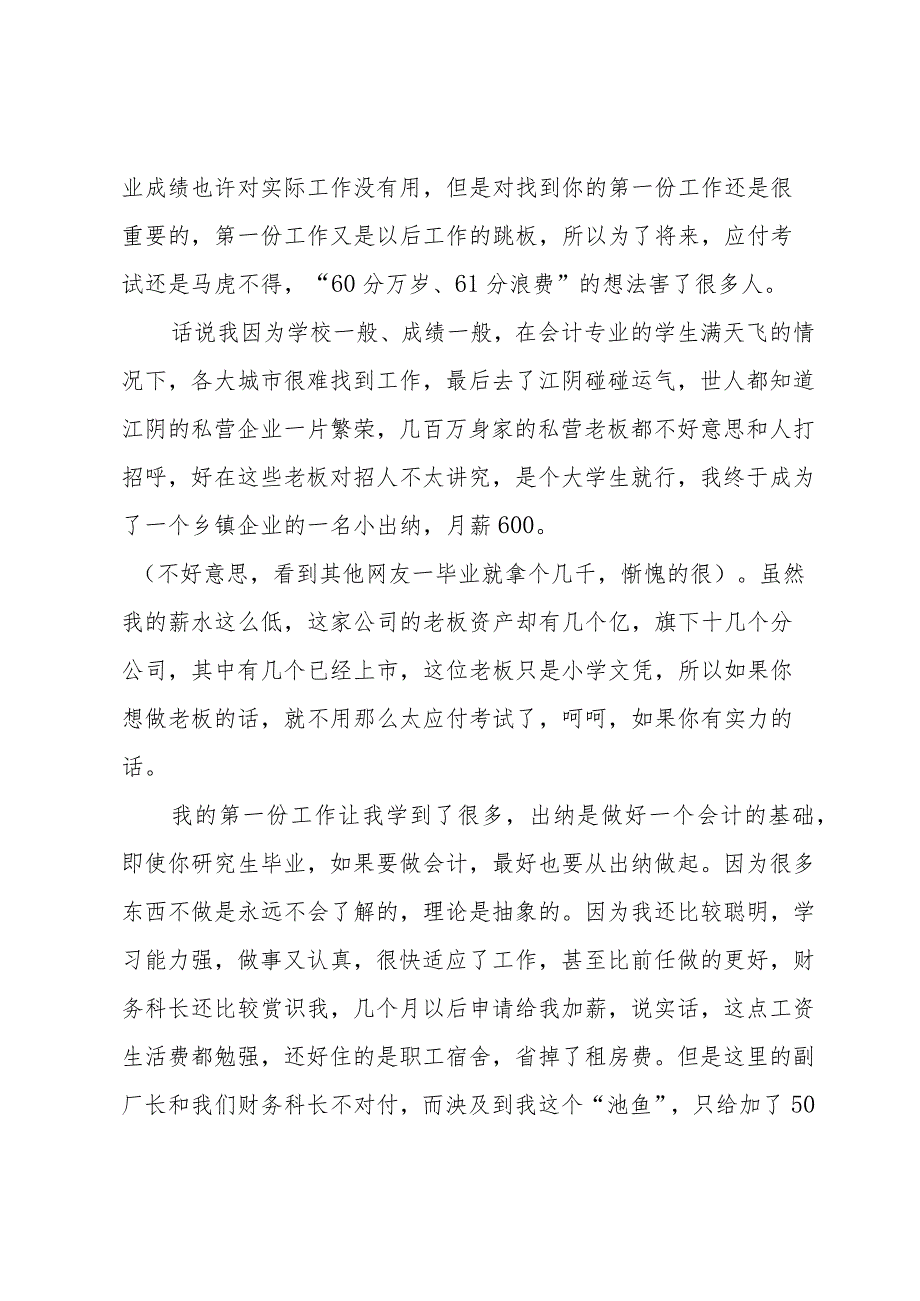 业成绩也许对实际工作没有用，但是对找到你的第一份工作还是很
重要的，第一份工作又是以后工作的跳板，所以为了将来，应付考
试还是马虎不得，“60分万岁、61分浪费”的想法害了很多人。
话说我因为学校一般、成绩一般，在会计专业的学生满天飞的情
况下，各大城市很难找到工作，最后去了江阴碰碰运气，世人都知道
江阴的私营企业一片繁荣，几百万身家的私营老板都不好意思和人打
招呼，好在这些老板对招人不太讲究，是个大学生就行，我终于成为
了一个乡镇企业的一名小出纳，月薪600。
（不好意思，看到其他网友一毕业就拿个几千，惭愧的很）。虽然
我的薪水这么低，这家公司的老板资产却有几个亿，旗下十几个分
公司，其中有几个已经上市，这位老板只是小学文凭，所以如果你
想做老板的话，就不用那么太应付考试了，呵呵，如果你有实力的
话。
我的第一份工作让我学到了很多，出纳是做好一个会计的基础，
即使你研究生毕业，如果要做会计，最好也要从出纳做起。因为很多
东西不做是永远不会了解的，理论是抽象的。因为我还比较聪明，学
习能力强，做事又认真，很快适应了工作，甚至比前任做的更好，财
务科长还比较赏识我，几个月以后申请给我加薪，说实话，这点工资
生活费都勉强，还好住的是职工宿舍，省掉了租房费。但是这里的副
厂长和我们财务科长不对付，而泱及到我这个“池鱼”，只给加了50